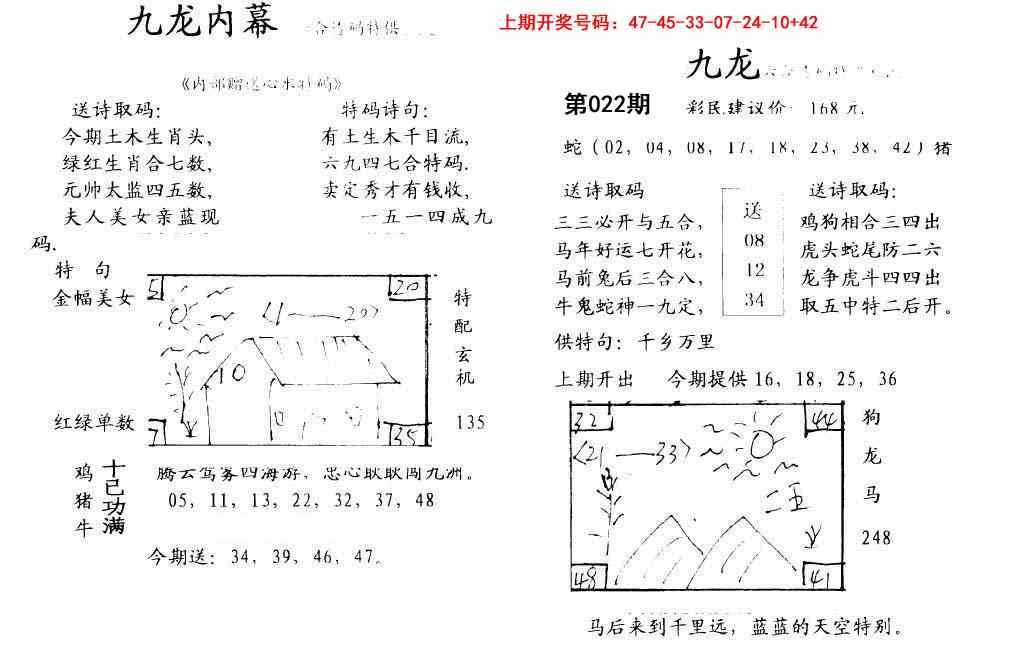 上期开奖号码：47-45-33-07-24-10+42
九龙内幕
送诗取码：
今期土木生肖头，
绿红生肖合七数，
元帅太监四五数，
夫人美女亲蓝现
码.
特码诗句：
有土生木千目流，
六九四七合特码.
卖定秀才有钱收，
一五一四成九
特 句
金幅美女
红绿单数
5
20
〈1——20〉
10
7
35
特
配
玄
机
135
鸡
猪
牛
十已功满
腾云驾雾四海游，忠心耿耿闯九洲。
05，11，13，22，32，37，48
今期送：34，39，46，47。
九龙
第022期
彩民建议价 168元.
蛇（02，04，08，17，18，23，38，42）猪
送诗取码
三三必开与五合，
马年好运七开花，
马前兔后三合八，
牛鬼蛇神一九定，
送
08
12
34
送诗取码：
鸡狗相合三四出
虎头蛇尾防二六
龙争虎斗四四出
取五中特二后开。
供特句：千乡万里
上期开出 今期提供16，18，25，36
32
44
〈21——33〉
二五
48
41
狗
龙
马
248
马后来到千里远，蓝蓝的天空特别。